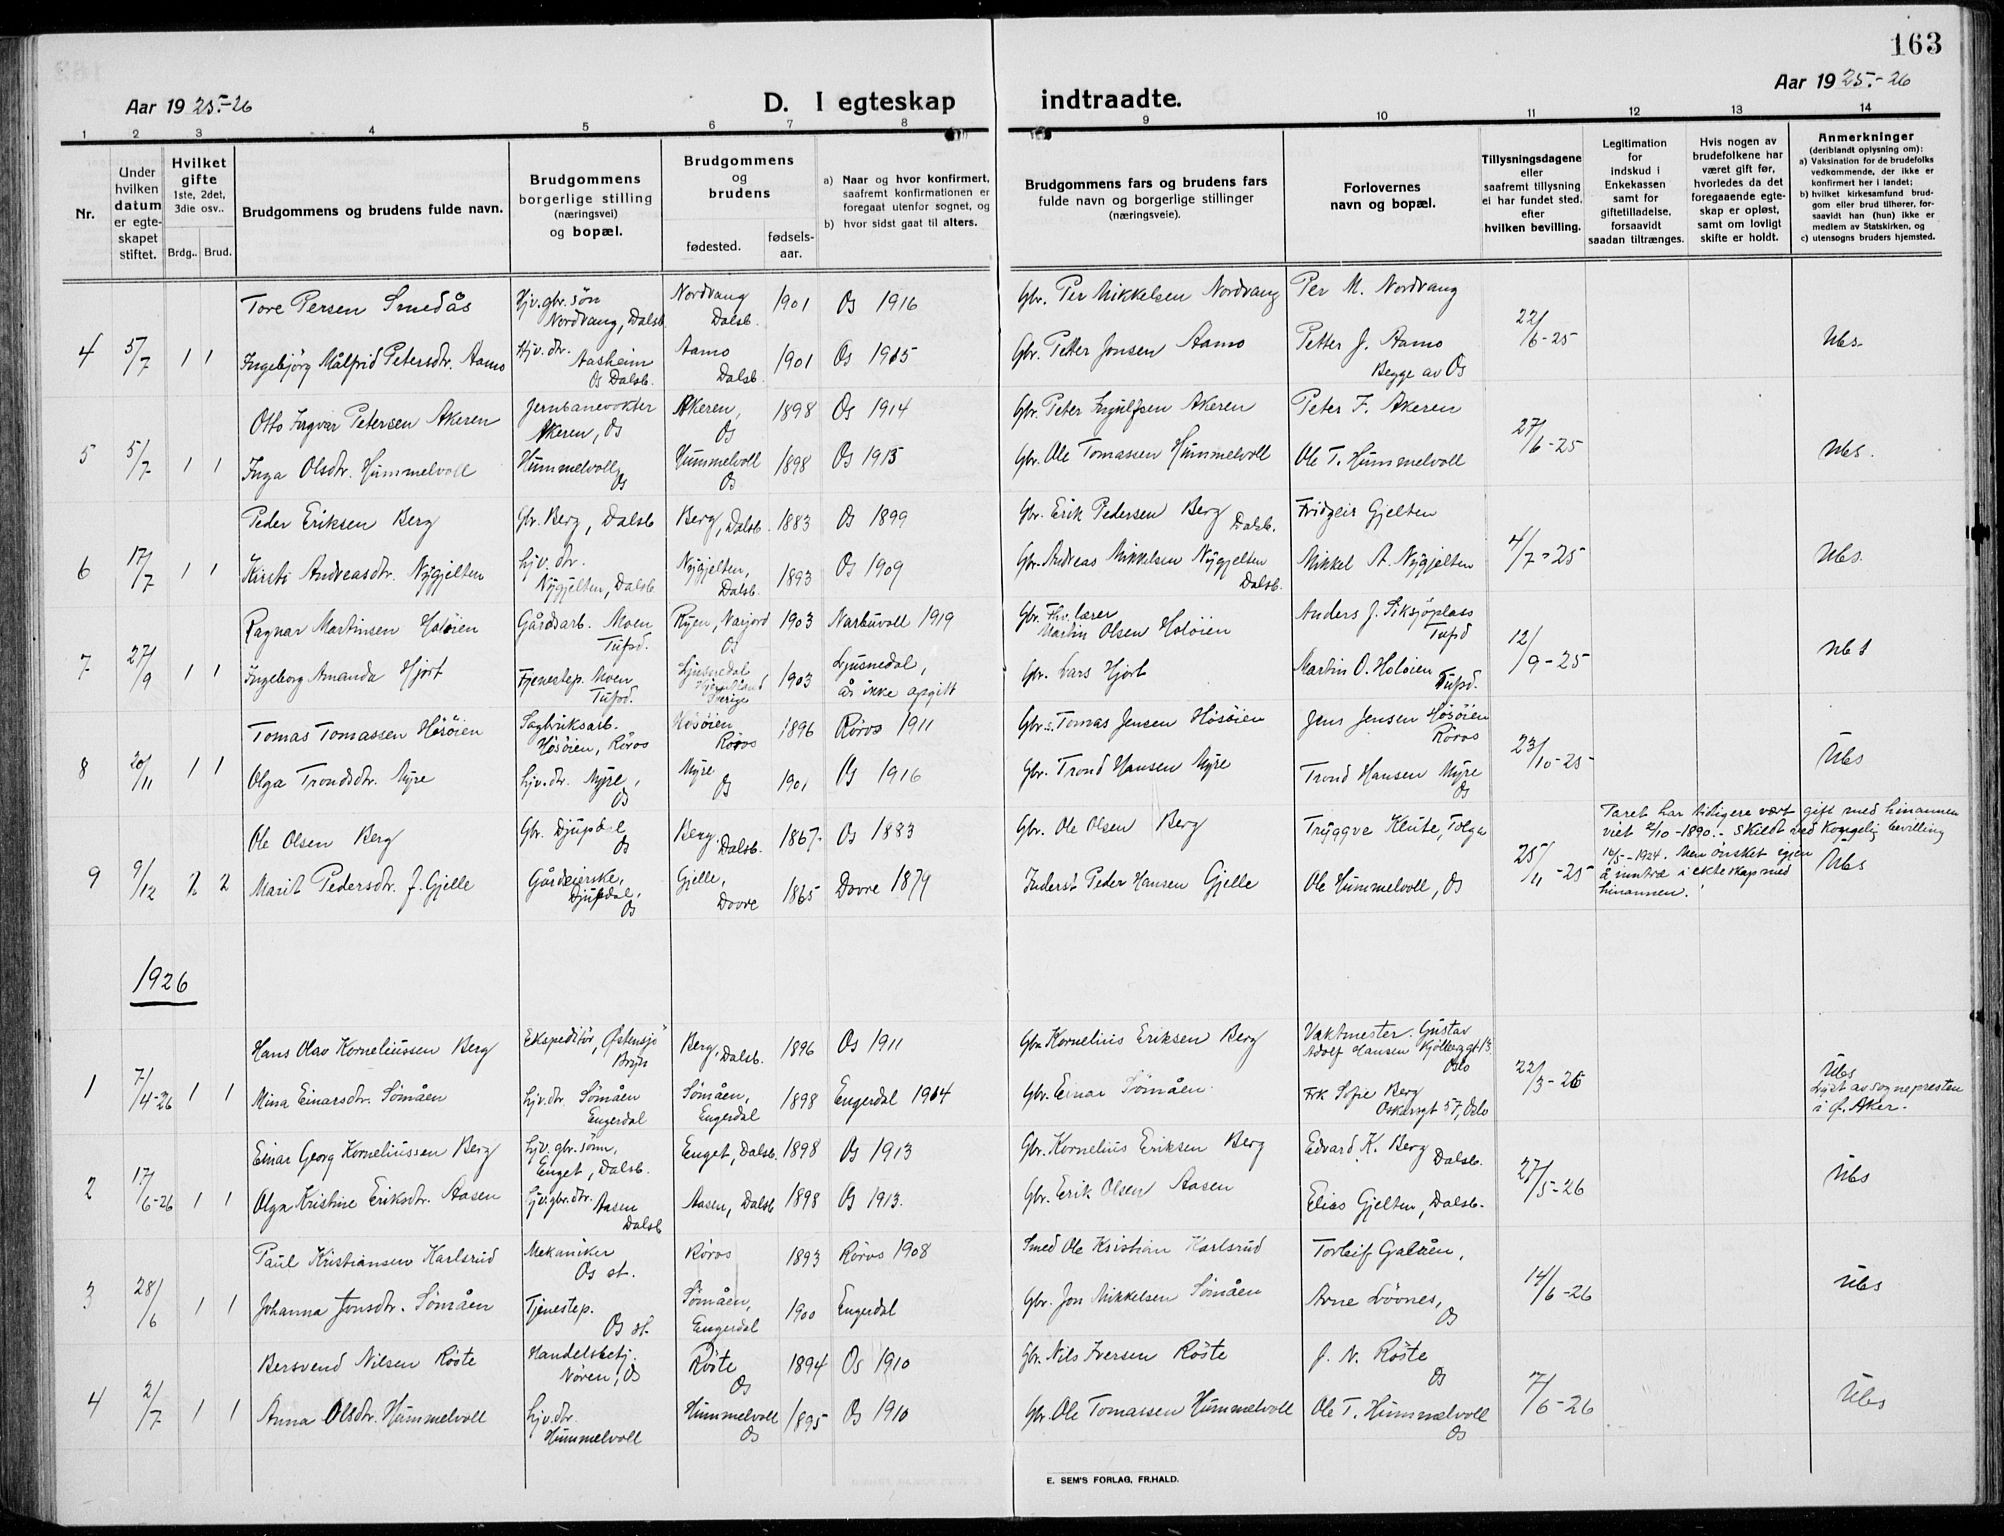 163
Aar 1925.-26
D. I egteskap indtraadte.
Aar 1925.-26
1 2 3 4 5 6 7 8 9 10 11 12 13 14
Nr.
Under hvilken datum er egte-skapet stiftet.
Hvilket gifte 1ste, 2det, 3die osv..
Brdg.. Brud.
Brudgommens og brudens fulde navn.
Brudgommens borgerlige stilling (næringsvei) og bopæl.
Brudgommens og brudens
fødested. fødsels-aar.
a) Naar og hvor konfirmert, saafremt konfirmationen er foregaat utenfor sognet, og
b) hvor sidst gaat til alters.
Brudgommens fars og brudens fars fulde navn og borgerlige stillinger (næringsveie).
Forlovernes navn og bopæl.
Tillysningsdagene eller saafremt tillysning ei har fundet sted, efter hvilken bevilling.
Legitimation for indskud i Enkekassen samt for giftetilladelse, forsaavidt saadan tiltrænges.
Hvis nogen av brudefolkene har været gift før, hvorledes da det foregaaende egte-skap er opløst, samt om lovligt skifte er holdt.
Anmerkninger (deriblandt oplysning om): a) Vaksination for de brudefolks vedkommende, der ikke er konfirmert her i landet; b) hvilket kirkesamfund brud-gom eller brud tilhører, for-saavidt han (hun) ikke er medlem av Statskirken, og c) utensogns bruders hjemsted.
Tore Persen Smedås Hjv. gbr. søn Nordvang, Dalsb. Nordvang Dalsb. 1901 Os 1916 Gbr. Per Mikkelsen Nordvang Per M. Nordvang
4 5/7 1 1 Ingebjörg Målfrid Petersdtr. Aamo Hjv. dtr. Aasheim Os Dalsb. Aamo Dalsb. 1901 Os 1915 Gbr. Petter Jonsen Aamo Petter J. Aamo Begge av Os 22/6-25 Ubs.
Otto Ingvar Petersen Akeren Jernbanevokter Akeren, Os Akeren, Os 1898 Os 1914 Gbr. Peter Ingulfsen Akeren Peter F. Akeren
5 5/7 1 1 Inga Olsdtr. Hummelvoll Hummelvoll Os Hummelvoll Os 1898 Os 1913 Gbr. Ole Tomassen Hummelvoll Ole T. Hummelvoll 27/6-25 Ubs.
Peder Eriksen Berg Gbr. Berg, Dalsb Berg, Dalsb. 1883 Os 1899 Gbr. Erik Pedersen Berg Dalsb. Fridgeir Gjelten
6 17/7 1 1 Kirsti Andreasdtr. Nygjelten hjv. dtr. Nygjelten, Dalsb. Nygjelten, Dalsb. 1893 Os 1909 Gbr. Andreas Mikkelsen Nygjelten Dalsb. Mikkel A. Nygjelten 4/7-25 Ubs.
Ragnar Martinsen Holøien Gårdsarb. Moen Tufsd. Ryen, Narjord Os 1903 Narbuvoll 1919 Gbr. Fhv. lærer Martin Olsen Holøien Anders J. Siksjöplass Tufsd
7 27/9 1 1 Ingeborg Amanda Hjort Tjenestep. Moen Tufsd. Ljusnedal Sverige 1903 Ljusnedal, år ikke opgitt Gbr. Lars Hjort Martin O. Holøien Tufsd. 12/9-25 Ubs
Tomas Tomassen Høsöien Sagbruksarb. Høsøien, Röros Høsöien Røros 1896 Røros 1911 Gbr.s. Tomas Jensen Høsöien Jens Jensen Høsöien Røros
8 20/11 1 1 Olga Trondsdtr. Myre hjv. dtr. Myre, Os Myre Os 1901 Os 1916 Gbr. Trond Hansen Myre Trond Hansen Myre Os 23/10-25 Ubs
Ole Olsen Berg Gbr. Djupdal Os Berg, Dalsb. 1867 Os 1883 Gbr. Ole Olsen Berg Tryggve Klute, Tolga
9 9/12 2 2 Marit Pedersdtr. f. Gjelle Gårdeierske, Djupdal, Os Gjelle, Dovre 1865 Dovre 1879 Inderst Peder Hansen Gjelle Ole Hummelvoll, Os 25/11-25 Ubs
Paret har tidigere vært gift med hinannen
viet 2/10-1890. Skildt ved Kongelig bevilling
16/5-1924. Men ønsket igjen
å inntræ i ekteskap med
hinannen!
1926
Hans Olav Korneliussen Berg Ekspeditör, Østensjö Bryn Berg, Dalsb. 1896 Os 1911 Gbr Kornelius Eriksen Berg Vaktmester Gustav Adolf Hansen Kjölberggt 13 Oslo
1 7/4-26 1 1 Mina Einarsdtr. Sömåen hjv. dtr. Sömåen Engerdal Sömåen, Engerdal 1898 Engerdal 1914 Gbr. Einar Sömåen Frk Sofie Berg Oskarsgt 57, Oslo 22/3-26 Ubs Lyst av sognepresten i Ø. Aker.
Einar Georg Korneliussen Berg hjv. gbr. sönn, Enget, Dalsb. Enget, Dalsb. 1898 Os 1913 Gbr. Kornelius Eriksen Berg Edvard K. Berg Dalsb.
2 17/6-26 1 1 Olga Kristine Eriksdtr. Aasen hjv. gbr. dtr. Aasen Dalsb Aasen, Dalsb 1898 Os 1913. Gbr. Erik Olsen Aasen Elias Gjelten, Dalsb. 27/5-26 Ubs
Paul Kristiansen Karlsrud Mekaniker Os st. Röros 1893 Röros 1908 Smed Ole Kristian Karlsrud Torleif Galåen,
3 28/6 1 1 Johanna Jonsdtr. Sömåen Tjenestep. Os st. Sömåen, Engerdal 1900 Engerdal Gbr. Jon Mikkelsen Sömåen Arne Lövnes, Os 14/6-26 Ubs
Bersvend Nilsen Röste Handelsbetj. Nören, Os Röste Os 1894 Os 1910 Gbr. Nils Iversen Röste J. N. Röste Os
4 2/7 1 1 Anna Olsdtr. Hummelvoll hjv. dtr. Hummelvoll Hummelvoll Os 1895 Os 1910 Gbr. Ole Tomassen Hummelvoll Ole T. Hummelvoll Os 7/6-26 Ubs
E. SEM'S FORLAG, FR.HALD.